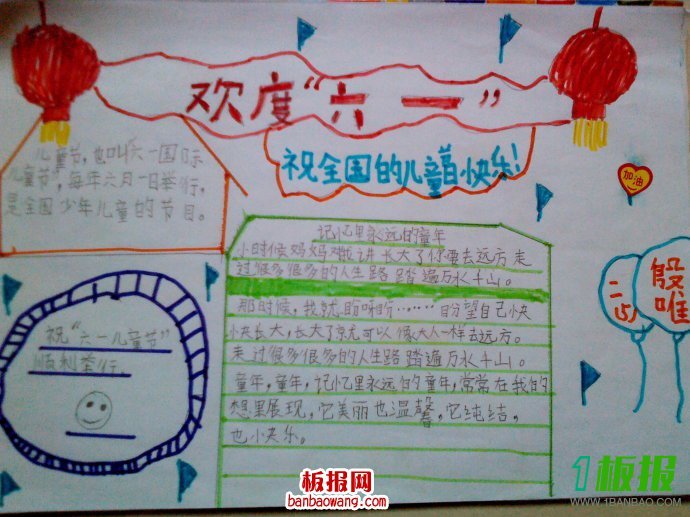 欢度“六一”
祝全国的儿童节快乐!
加油
儿童节,也叫六一国际
儿童节,每年六月一日举行,
是全国少年儿童的节目。
记忆里永远的童年
小时候妈妈对我讲长大了你要去远方走
过很多很多的人生路踏遍万水千山。
那时候,我就盼呀盼……盼望自己快
快快长大,长大了就可以像大人一样去远方。
走过很多很多的人生路踏遍万水千山。
童年,童年,记忆里永远的童年,常常在我的
想里展现,它美丽也温馨,它纯结,
也小快乐。
祝“六一儿童节”
顺利举行。
二
班
唯
板报网
banbaowang.com
1板报
WWW.1BANBAO.COM